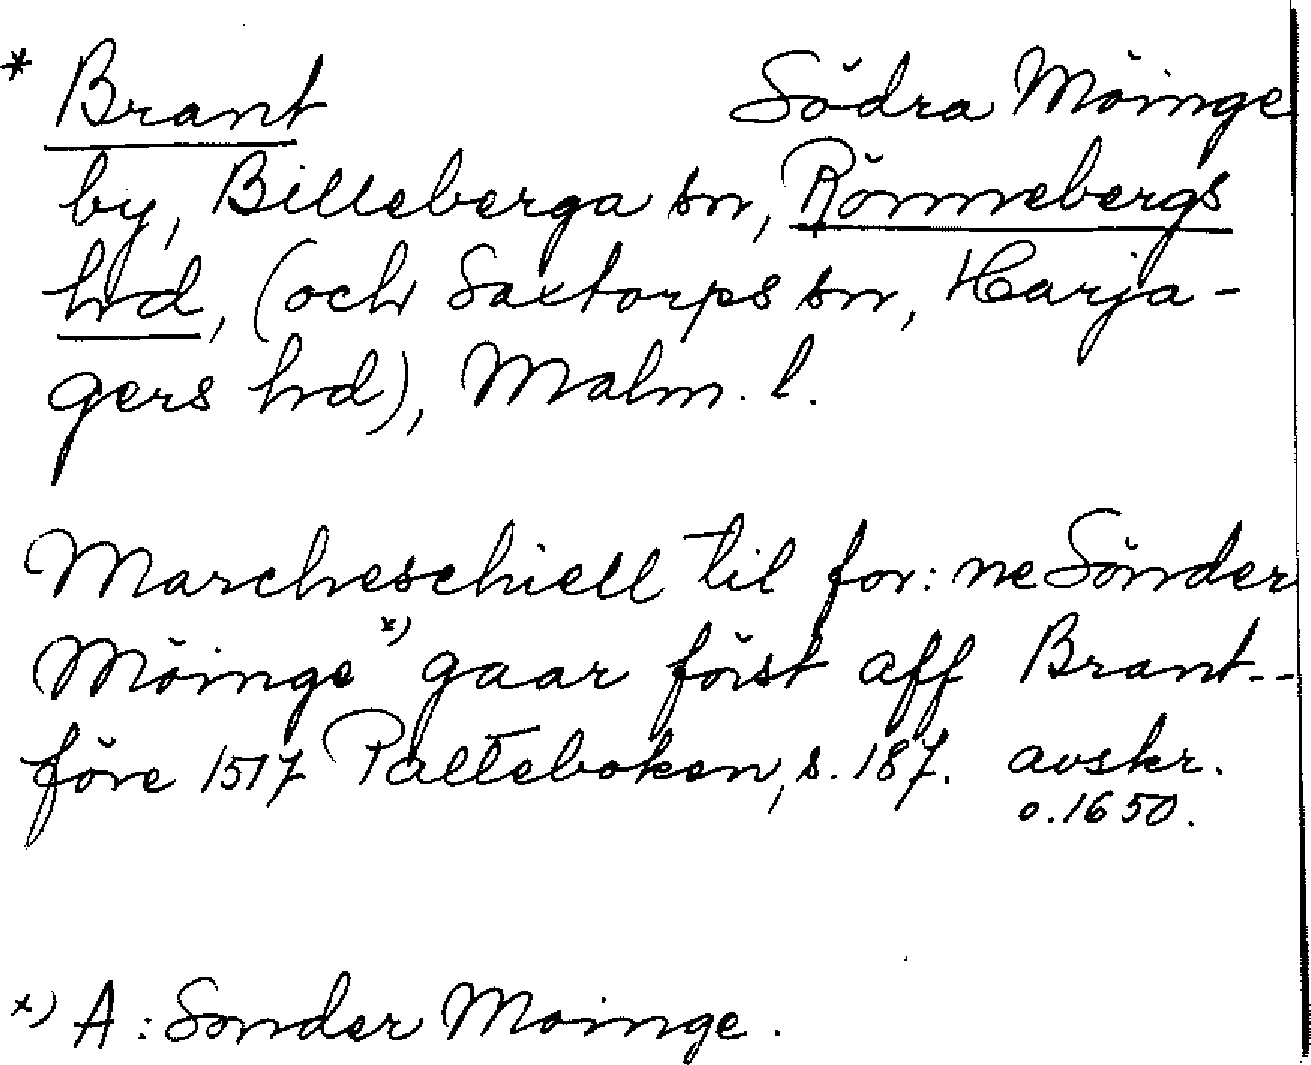 * Brant Södra Möinge
by, Billeberga sn, Rönnebergs
hrd, (och Saxtorps sn, Harja-
gers hrd), Malm. l.
Marcheschiell til for: ne Sönder
Möinge x) gaar först aff Brant--
före 1517 Palteboken, s. 187. avskr.
o. 1650.
x) A: Sonder Moinge.